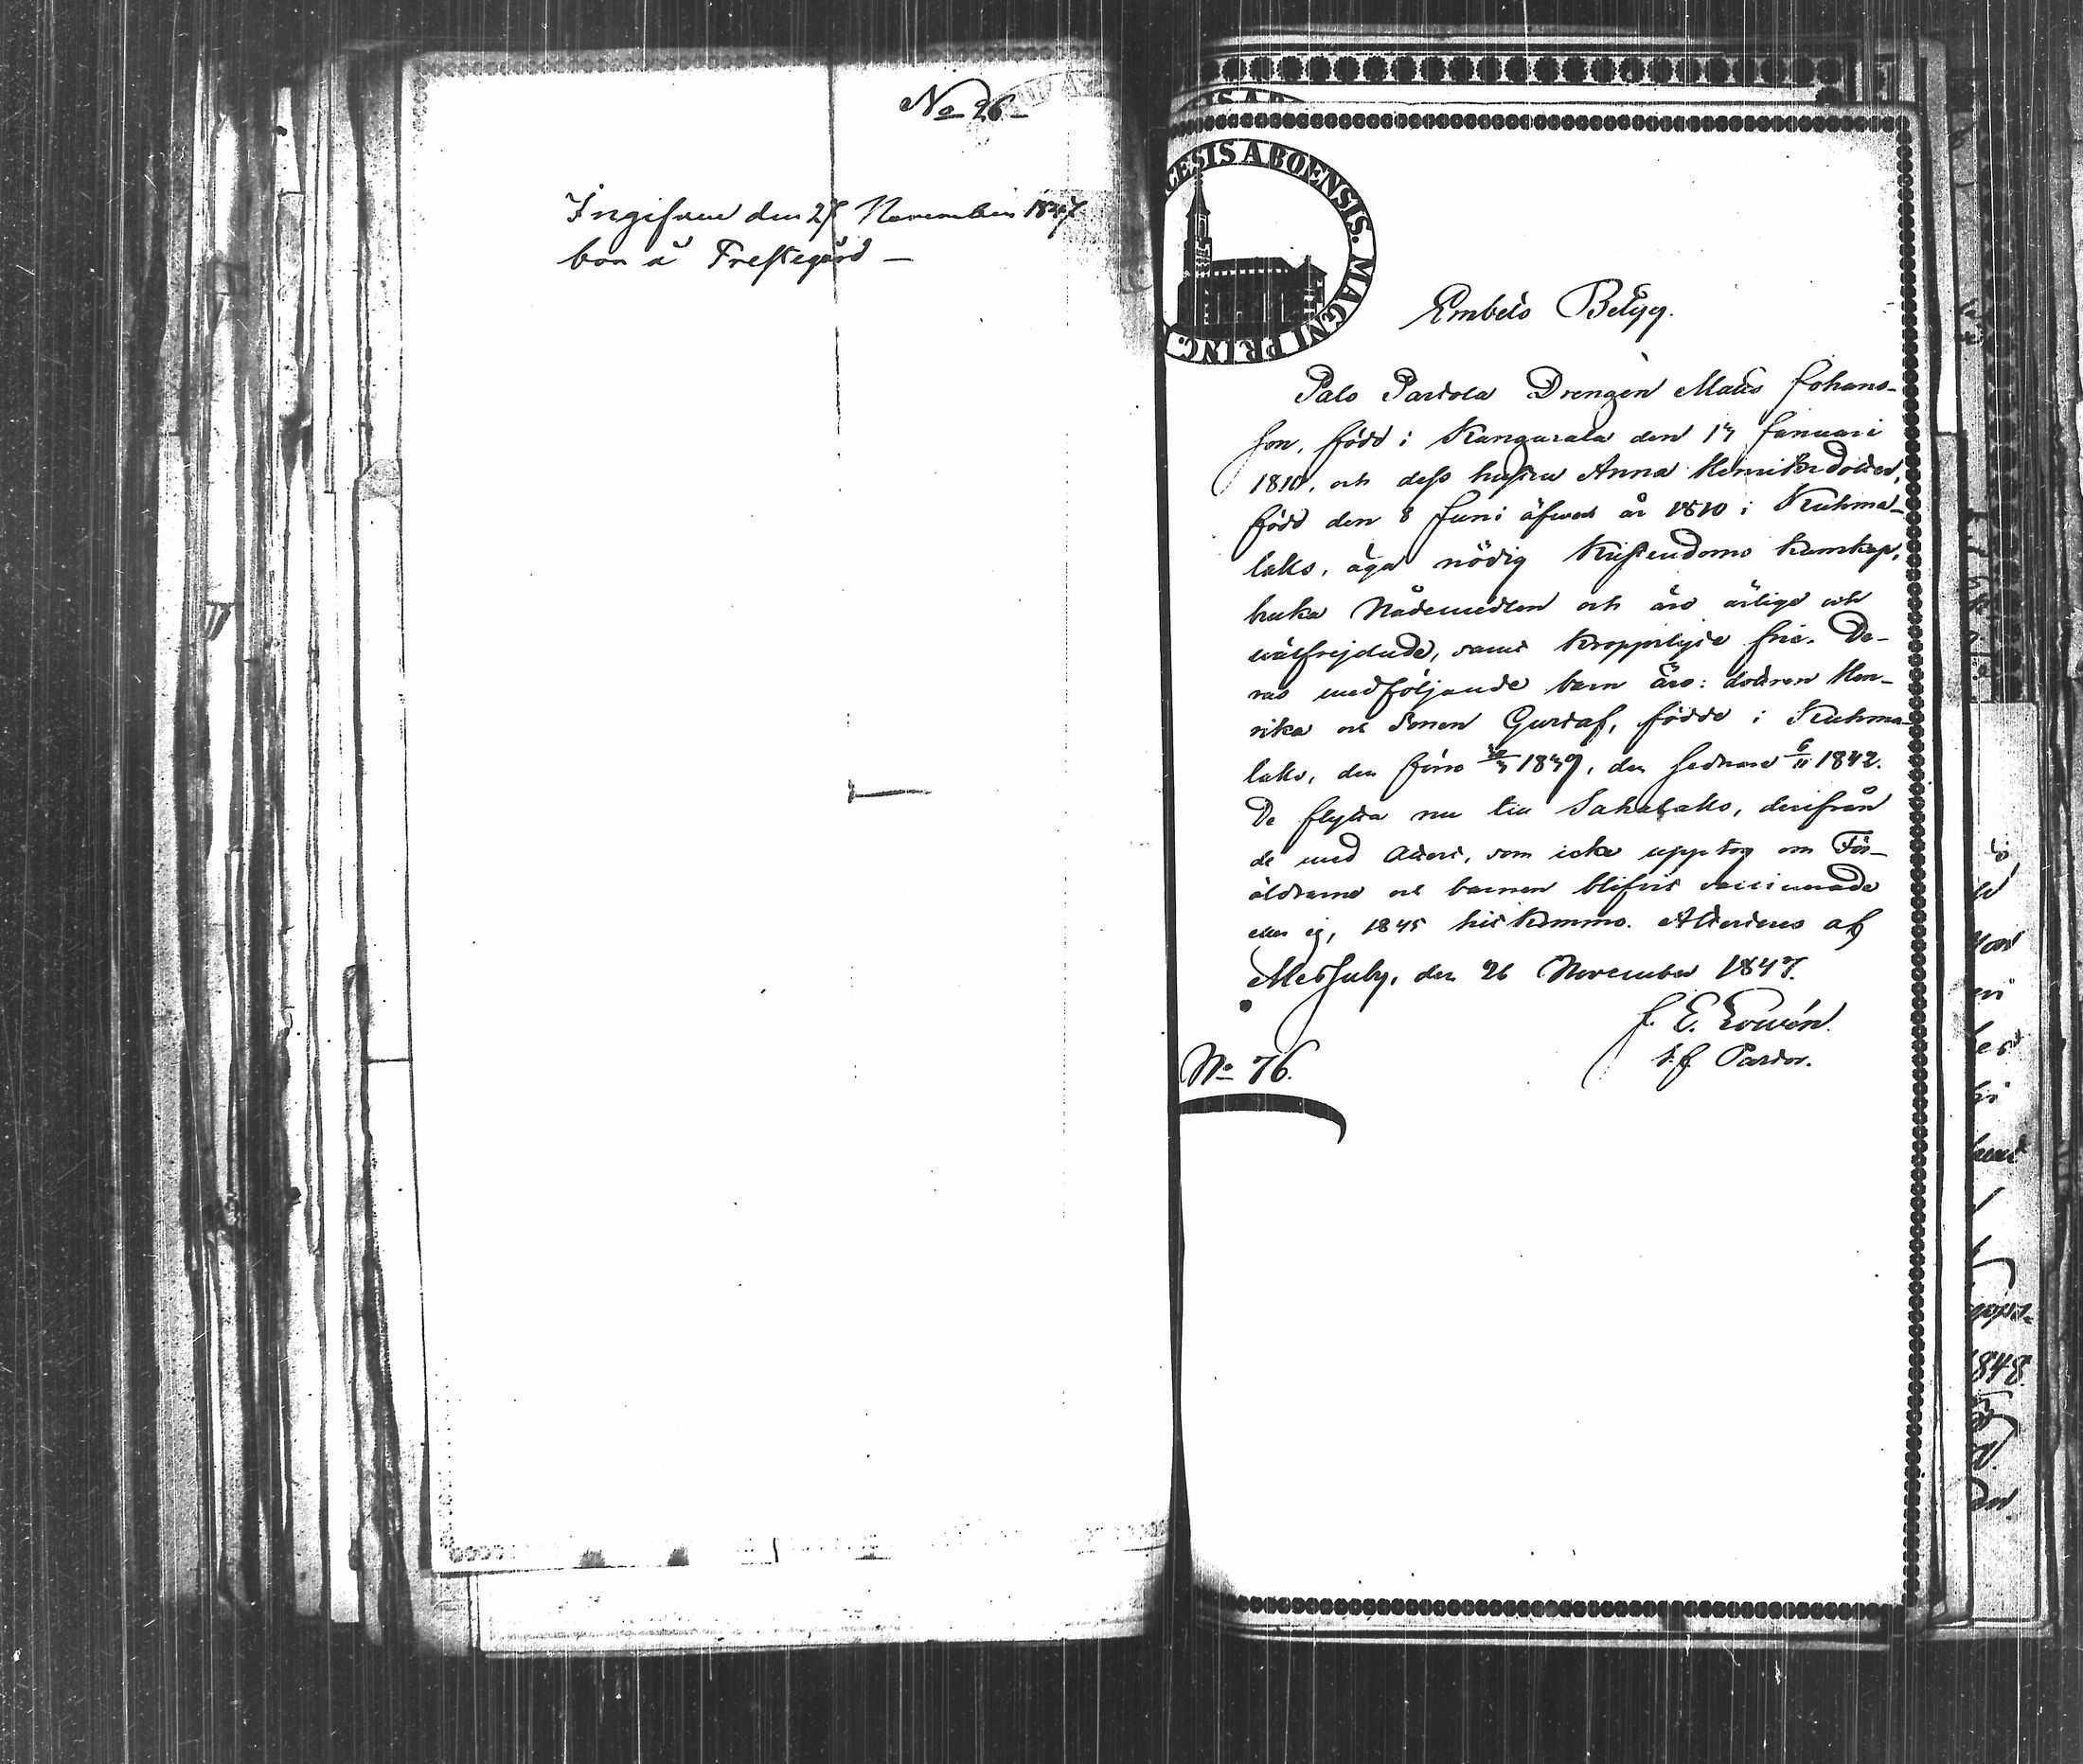 No 26
Ingifven den 27 November 1847
bor å Prestegård —
CESIS ABOENSIS. MAGNI PRINC.
Embets Betyg.
Palo Partola Drengen Matts Johans-
son, född i Kangasala den 17 Januari
1810, och dess hustru Anna Henriksdotter,
född den 8 Juni äfven år 1810 i Kuhma-
laks, äga nödig Kristendoms kunskap,
bruka Nådemedlen och äro ärlige och
wälfrejdade, samt kroppslyte frie. De-
ras medföljande barn äro: dottren Hen-
rika och Sonen Gustaf, födde i Kuhma-
laks, den förra 1839, den sednare 6/11 1842.
De flytta nu till Sahalaks, derifrån
de med Attest, som icke upptog om För-
äldrarne och barnen blifvit vaccinerade
eller ej, 1845 hit kommo. Attesteras af
Messuby, den 26 November 1847.
J. E.
t.f. Pastor.
No 76.
848